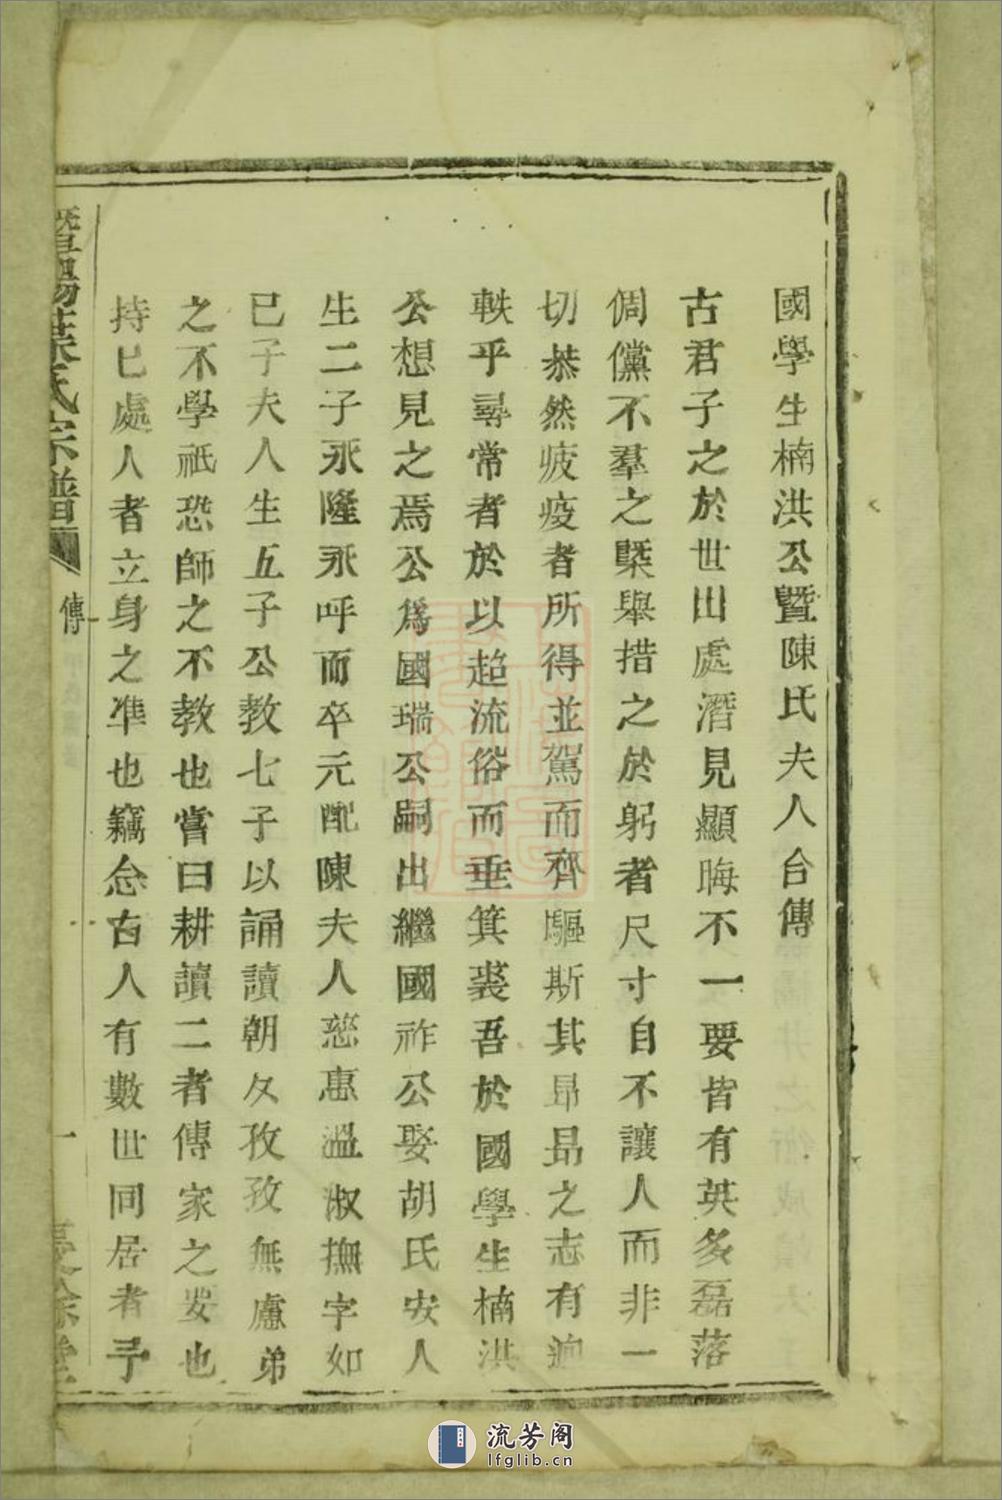 國學生楠洪公暨陳氏夫人合傳
古君子之於世出處潛見顯晦不一要皆有英多磊落
倜儻不羣之槩舉措之於躬者尺寸自不讓人而非一
切恭然疲疫者所得並駕而齊驅斯其昻昻之志有逈
軼乎尋常者於以超流俗而垂箕裘吾於國學生楠洪
公想見之焉公爲國瑞公嗣出繼國祚公娶胡氏安人
生二子永隆永呼而卒元配陳夫人慈惠溫淑撫字如
已子夫人生五子公教七子以誦讀朝夂孜孜無慮弟
之不學祇恐師之不教也嘗曰耕讀二者傳家之要也
持已處人者立身之準也竊念古人有數世同居者予
暨陽葉氏宗譜
傳
一
餘堂
流芳阁
lfglib.cn